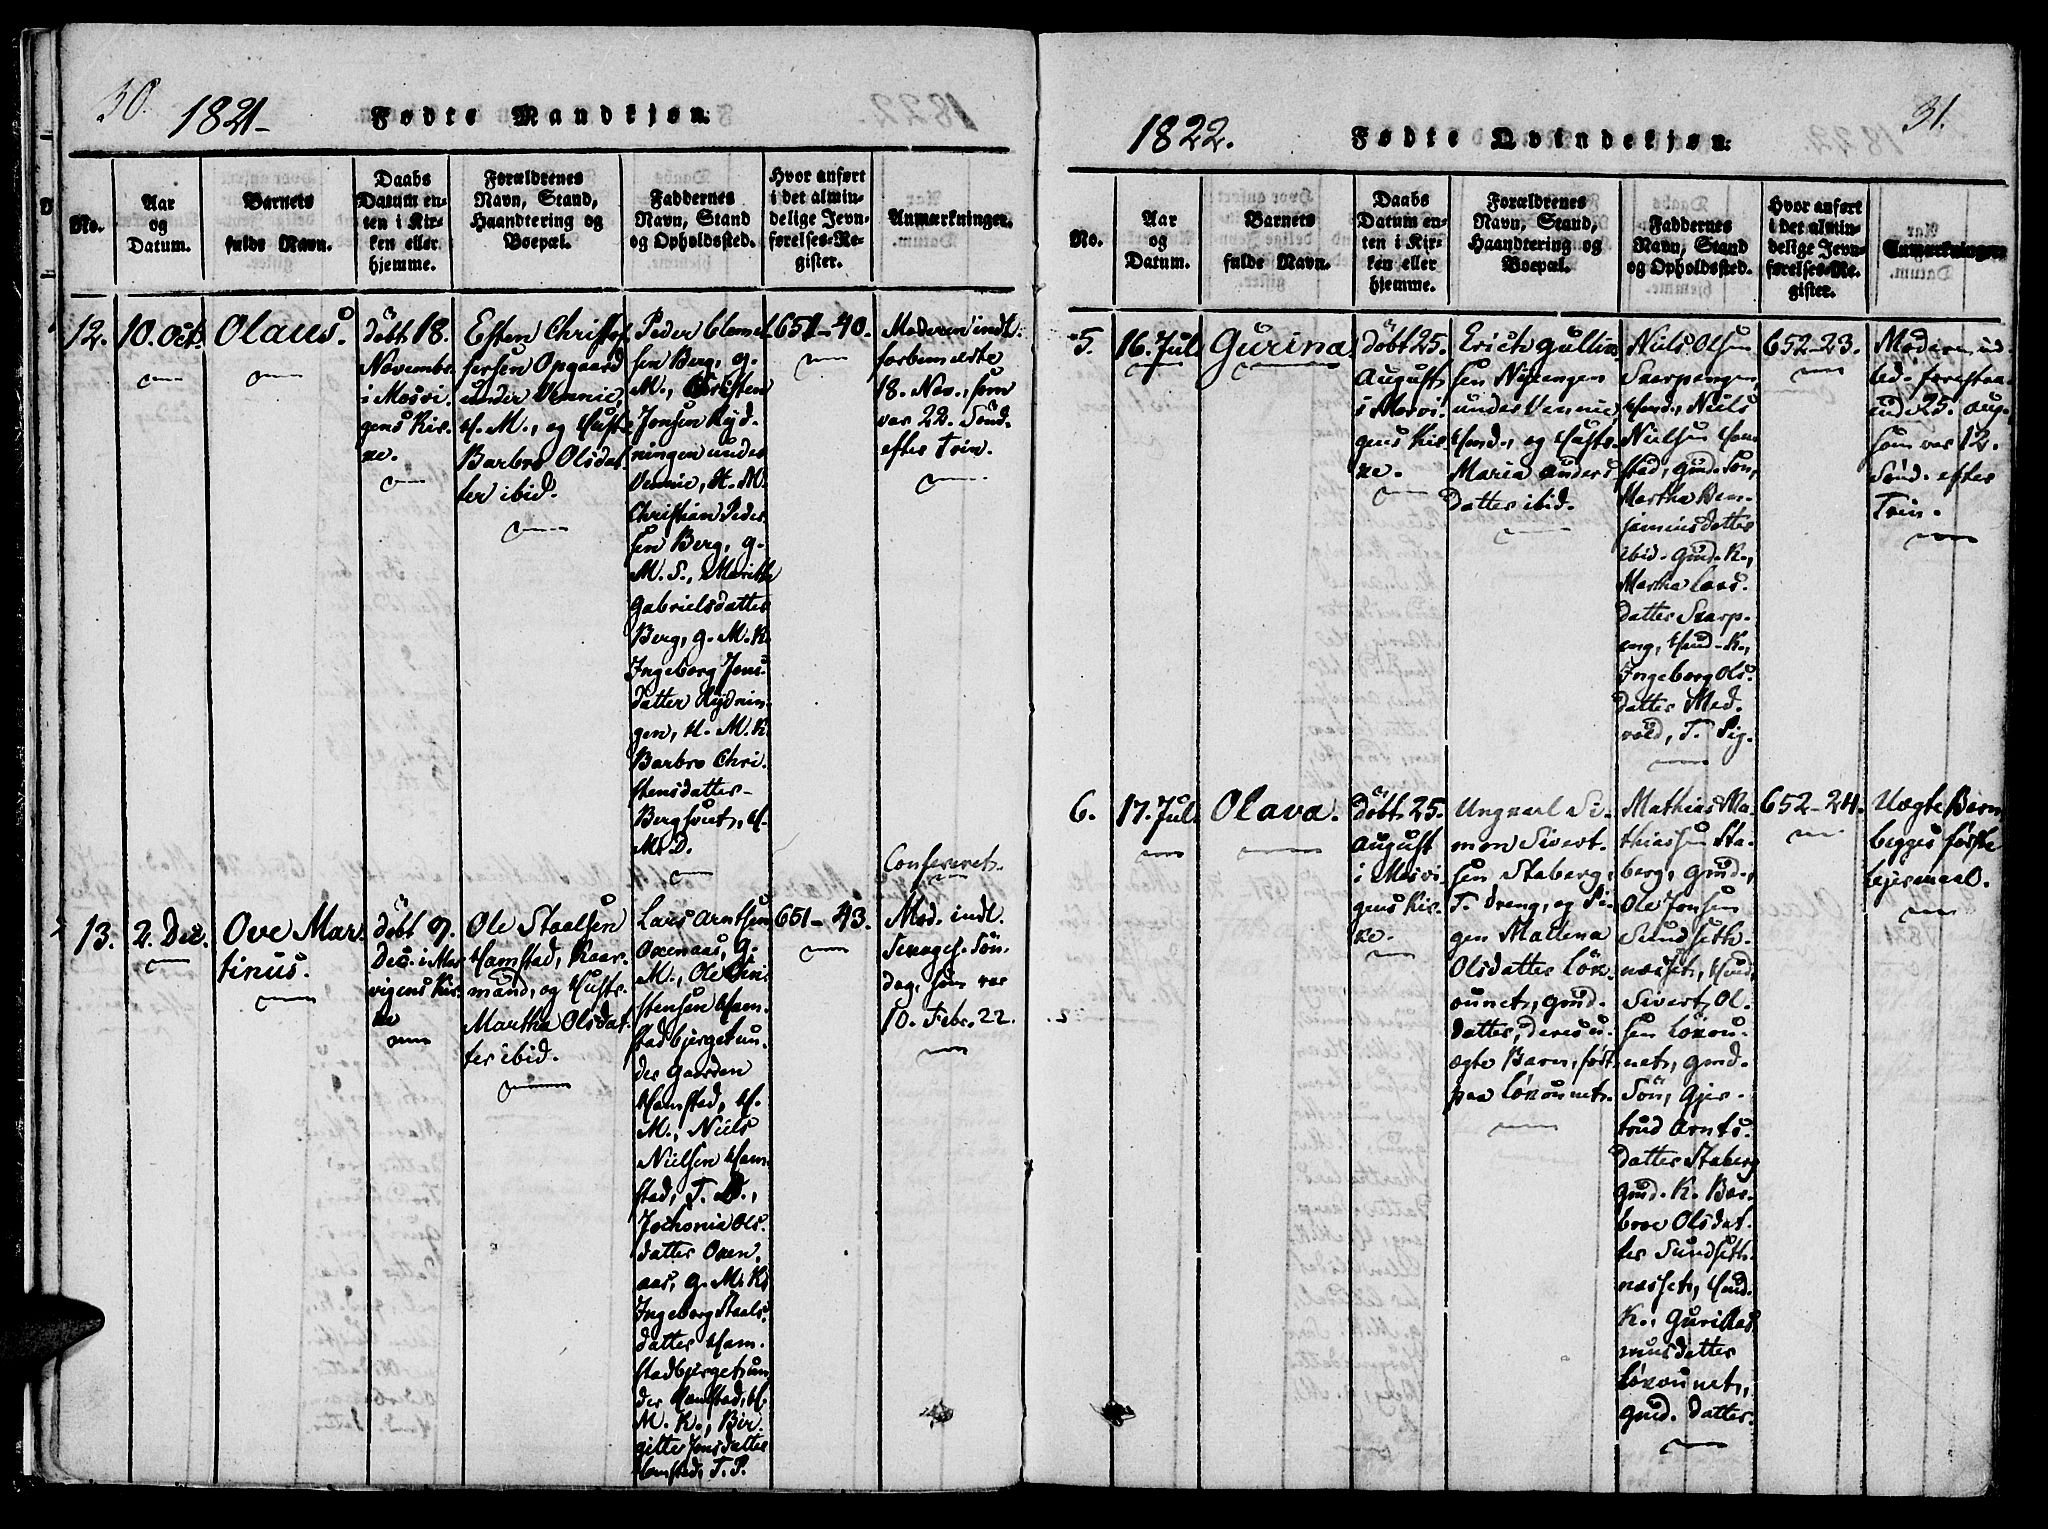 30.
1821-
Fødte Mandkjøn.
No.
Aar
og
Datum.
Barnets
fulde Navn.
Daabs
Datum en-
ten i Kir-
ken eller
hjemme.
Forældrenes
Navn, Stand,
Haandtering og
Boepæl.
Faddernes
Navn, Stand
og Opholdssted.
Hvor anført
i det almin-
delige Jevn-
førelses-Re-
gister.
Anmærkninger.
12.
10. Oct.
Olaus.
döbt 18.
Novembr.
i Mosvi-
gens Kir-
ke.
Esten Christof
fersen Opgaard
under Vennie,
H. M., og Hustr.
Barbro Olsdat
ter ibid.
Peder Clemet
sen Berg, g.
M., Christen
Jonsen Ryd-
ningen under
Vennie, H. M.
Christian Peder
sen Berg, g.
M. S., Marith
Gabrielsdatter
Berg, g. M. K.
Ingeborg Jons-
datter Rydnin-
gen, H. M. K.
Barbro Chri-
stensdatter
Berg, H.
M. D.
651-40.
Moderen indl.
forbemeldte
18. Nov., som
var 22. Sönd.
efter Trin.
13.
2. Dec.
Ove Mar-
tinus.
döbt 9.
Dec. i Mos
vigens Kir-
ke
Ole Staalsen
Hamstad, Gaar-
mand, og Hustr.
Martha Olsdat-
ter ibid.
Lars Arntsen
Oxenaas, g.
M., Ole Chri-
stensen Ham-
stadbjerget un-
der Gaarden
Hamstad, H.
M., Niels
Nielsen Ham-
stad, T. D.,
Olsdatter Oxen-
aas, g. M. K.
Ingeborg Staals-
datter Ham-
stadbjerget un-
der Hamstad, H.
M. K., Bir-
gitte Jonsdatter
Hamstad, T. P.
651-43.
Confereret.
Mod. indl.
Sexages. Sön-
dag, som var
10. Febr. 22.
31.
1822.
Fødte Qvindekjøn.
No.
Aar
og
Datum.
Barnets
fulde Navn.
Daabs
Datum en-
ten i Kir-
ken eller
hjemme.
Forældrenes
Navn, Stand,
Haandtering og
Boepæl.
Faddernes
Navn, Stand
og Opholdssted.
Hvor anført
i det almin-
delige Jevn-
førelses-Re-
gister.
Anmærkninger
5.
16. Jul.
Gurina.
döbt 25.
August
i Mosvi-
gens Kir-
ke.
Erich Gullin
sen
under Vennie,
Hmd., og Hustr.
Maria Anders
datter ibid.
Niels Olsen
Skarpengen,
Hmd., Niels
Nielsen Ham-
stad, Gmd. Sön,
Martha Ben-
jaminsdatter
ibid. Gmd. K.,
Martha Lars-
datter Skarp-
eng, Hmd. K.,
Ingeborg Ols-
datter Med-
vold, T. Pig.
652-23.
Moderen ind
led. forestaa-
ende 25. Aug.,
som var 12.
Sönd. efter
Trin.
6.
17. Jul.
Olava.
döbt 25.
August
i Mosvi-
gens Kir-
ke.
Ungkarl Si-
mon Sivert-
sen Staberg,
T. dreng, og Pi-
gen Mallena
Olsdatter Löx-
ounet, Gmd.
datter, deres u-
ægte Barn, födt
paa Löxounet.
Mathias Ma-
thiassen Sta-
berg, Gmd.,
Ole Jonsen
Sundseth-
næsset, Hmd,
Sivert Ol-
sen Löxou-
net, Gmd.
Sön, Gjer-
trud Arnts-
datter Staberg
Gmd. K. Bar-
broe Olsdat-
ter Sundseth-
næsset, Hmd.
K., Guri Ras-
musdatter
Löxounet,
Gmd. datter.
652-24.
Uægte Barn
begges förste
Lejermaal.